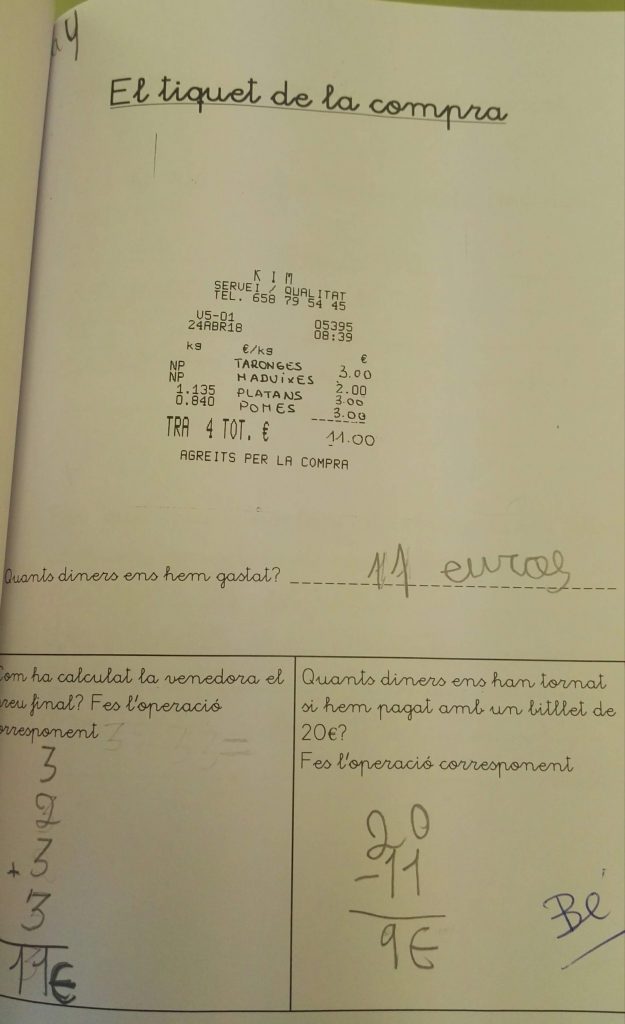 El tiquet de la compra
K I M
SERVEI / QUALITAT
TEL. 658 79 54 45
U5-01 05395
24ABR18 08:39
kg €/kg €
NP TARONGES 3.00
NP MADUIXES 2.00
1.135 PLATANS 3.00
0.840 POMES 3.00
TRA 4 TOT. € 11.00
AGREITS PER LA COMPRA
Quants diners ens hem gastat? 11 euros
Com ha calculat la venedora el
preu final? Fes l'operació
corresponent
3
2
+ 3
3
11€
Quants diners ens han tornat
si hem pagat amb un bitllet de
20€?
Fes l'operació corresponent
20
-11
9€
Bé